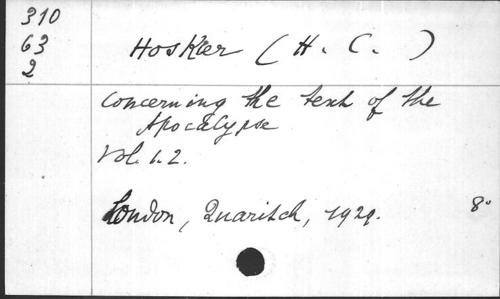 310
63
2
Hoskier (H. C. )
Concerning the text of the
Apocalypse
Vol. 1. 2.
London, Quaritch, 1929. 8°